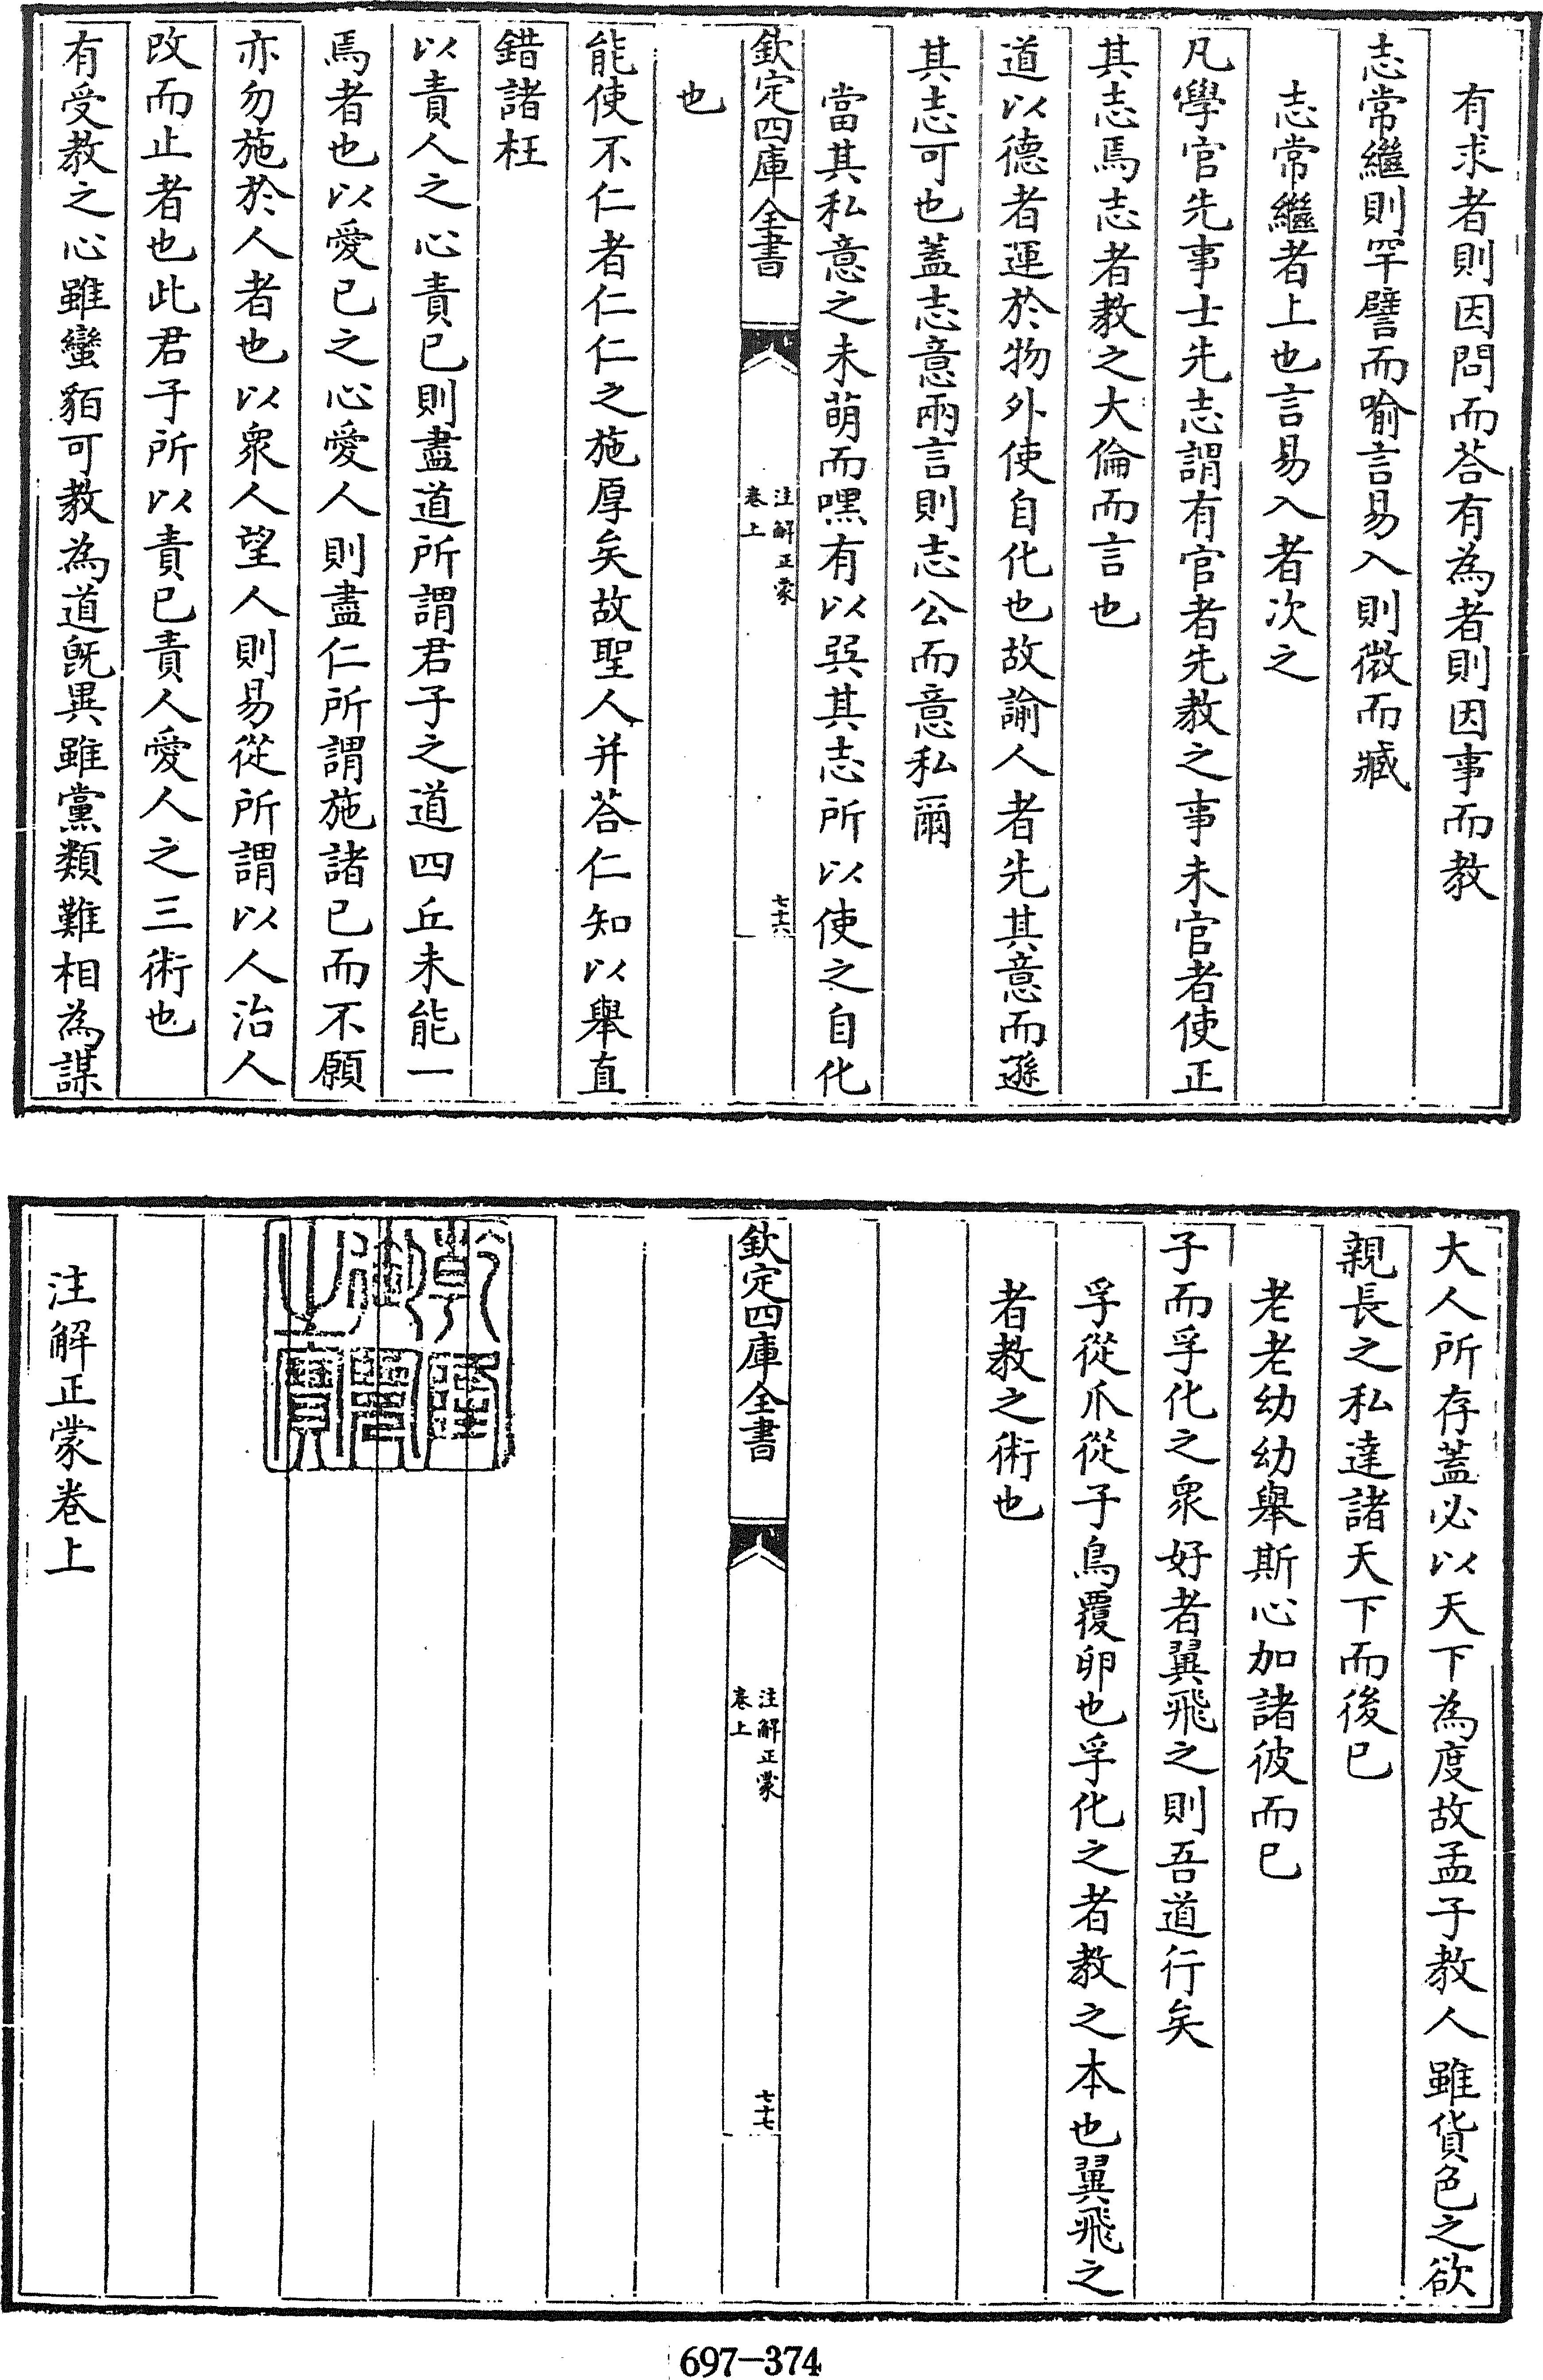 有求者則因問而荅有為者則因事而教
志常繼則罕譬而喻言易入則微而臧
志常繼者上也言易入者次之
凡學官先事士先志謂有官者先教之事未官者使正
其志焉志者教之大倫而言也
道以德者運於物外使自化也故諭人者先其意而遜
其志可也蓋志意兩言則志公而意私爾
當其私意之未萌而嘿有以巽其志所以使之自化
欽定四庫全書
注解正蒙
卷上
七十六
也
能使不仁者仁仁之施厚矣故聖人并荅仁知以舉直
錯諸枉
以責人之心責已則盡道所謂君子之道四丘未能一
焉者也以愛已之心愛人則盡仁所謂施諸已而不願
亦勿施於人者也以衆人望人則易從所謂以人治人
改而止者也此君子所以責已責人愛人之三術也
有受教之心雖蠻貊可教為道旣異雖黨類難相為謀
大人所存蓋必以天下為度故孟子教人雖貨色之欲
親長之私達諸天下而後已
老老幼幼舉斯心加諸彼而已
子而孚化之衆好者翼飛之則吾道行矣
孚從爪從子鳥覆卵也孚化之者教之本也翼飛之
者教之術也
欽定四庫全書
注解正蒙
卷上
七十七
乾隆御覽之寶
注解正蒙卷上
697-374